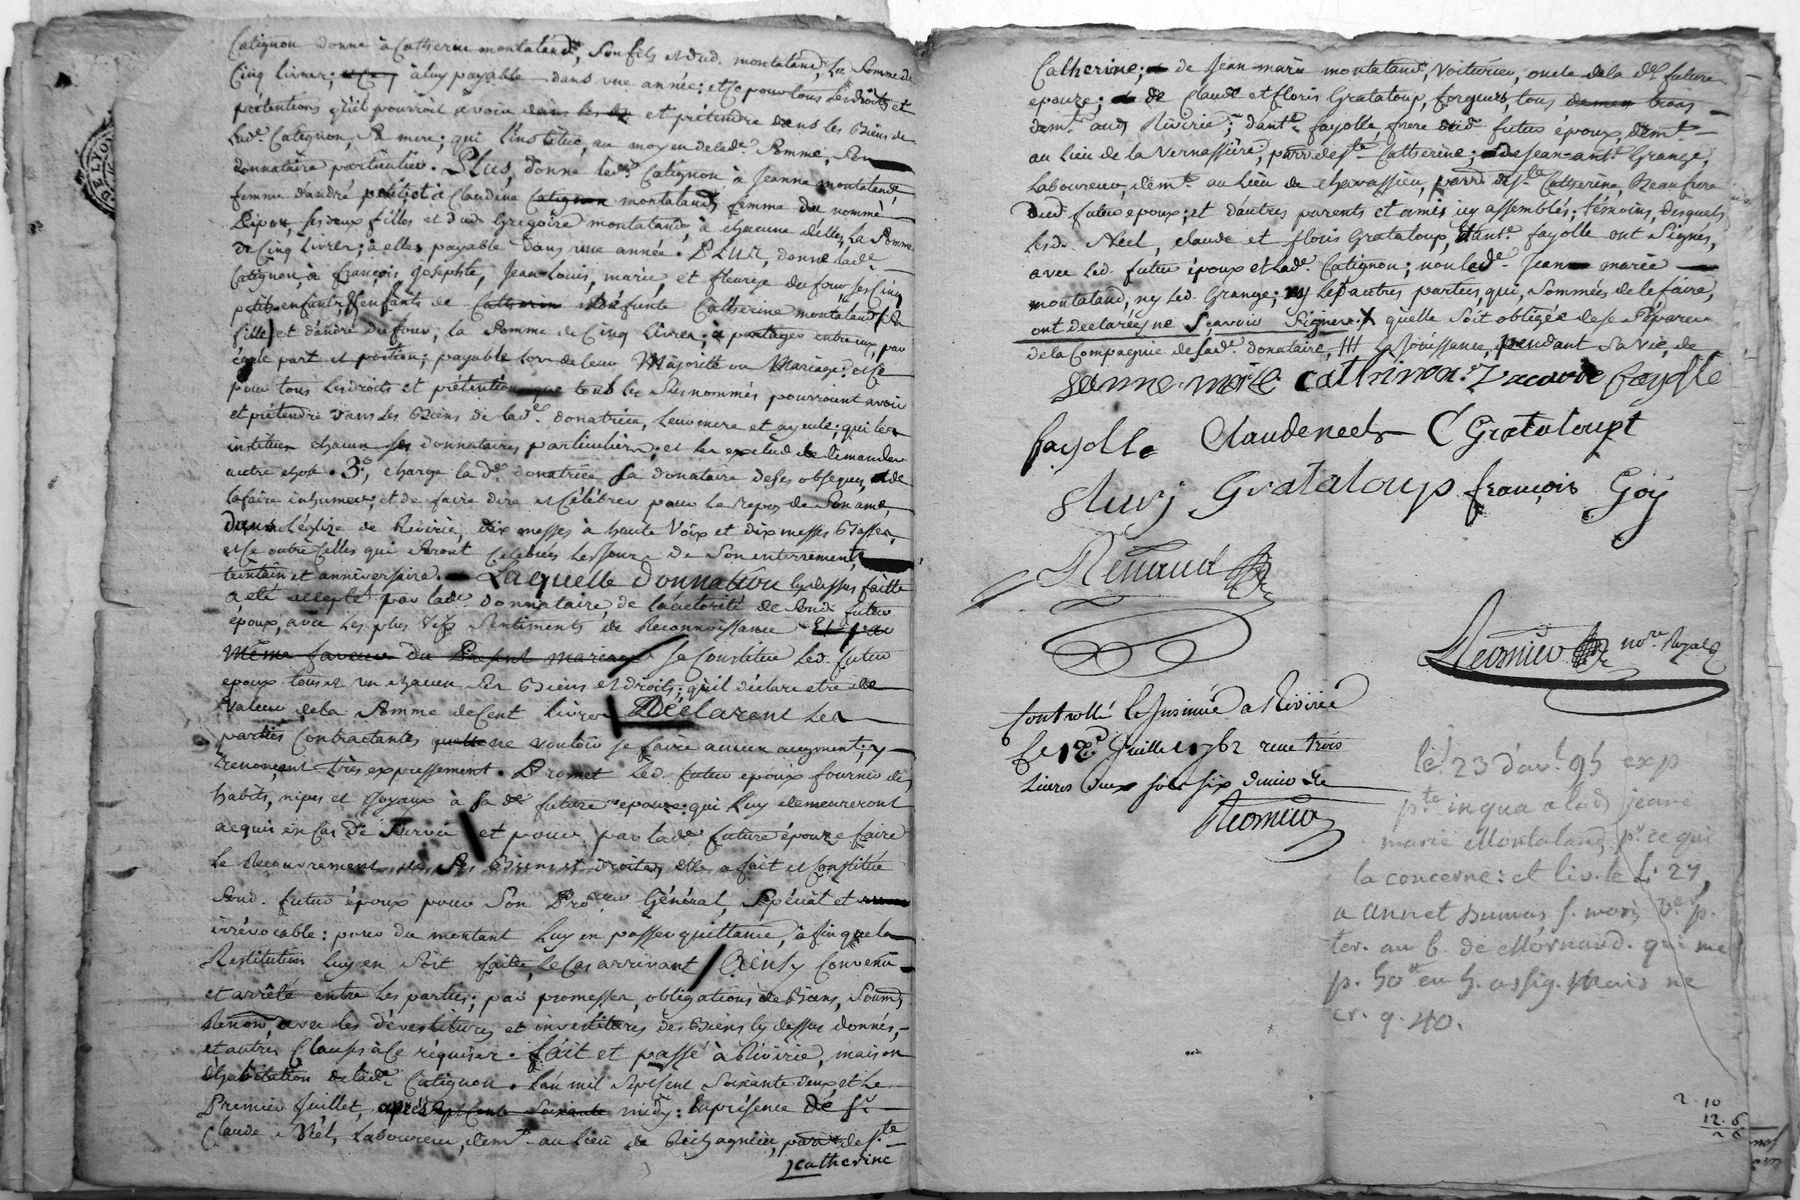 Catignon donne à Catherine montaland, son fils et dud. montaland, la somme de
Cinq livres; à luy payable dans une année; et ce pour tous les droits et
prétentions qu'il pourroit avoir et prétendre dans les Biens de
lade. Catignon, sa mere; qui l'institue, au moyen delade. somme, son
donnataire particulier. Plus, donne lade. Catignon à Jeanne montaland,
femme d'andré et à Claudine Catignon montaland, femme du nommé
Pipon, ses deux filles et dud. Grégoire montaland, à chacune d'elles, la somme
de Cinq Livres; à elles payable dans une année. Plus, donne lade.
Catignon, à françois, Josephte, Jean-Louis, marie, et fleurye dufour, ses Cinq
petits enfants, enfants de défunte Catherine montaland, sa
fille, et d'andré dufour, la somme de Cinq Livres; à partager entre eux, par
égale part et portion; payable lors de leur Majorité ou Mariage: et ce
pour tous les droits et prétentions que tous les susnommés pourroient avoir
et prétendre dans les Biens de lade. donatrice, leur mere et ayeule; qui les
institue chacun ses donnataires particuliers; et les exclud de demander
autre chose. 3°, charge lade. donatrice sa donataire de ses obseques, de
la faire inhumer; et de faire dire et célébrer pour le repos de son ame,
dans l'église de Rivirie, dix messes à haute voix et dix messes Basses,
et ce outre celles qui seront célébrées les jours de son enterrement,
trentain et anniversaire. Laquelle donnation cy dessus faitte
a été acceptée par lade. donnataire de l'autorité de sond. futur
époux, avec les plus vifs sentiments de Reconnoissance Et par
même faveur du Présent mariage se Constitue led. futur
epoux tous et un chacun ses Biens et droits; qu'il déclare etre de
valeur de la somme de Cent livres Déclarent les
parties Contractantes que ne vouloir se faire aucun augment; y
renonçant très expressement. Promet led. futur epoux fournir de
habits, nipes et Joyaux à sade. future epouze: qui luy demeureront
acquis en Cas de survie et pour par lade. future épouze faire
le Recouvrement de ses Biens et droits, elle a fait et Constitué
sond. futur époux pour son Procureur Général, Spécial et
irrévocable: pour du montant luy en passer quittance, à fin que la
Restitution luy en soit faitte, le Cas arrivant Ainsy Convenu
et arrêté entre les parties; par promesses, obligations de Biens, soumis.
Renon. avec les dévestitures et investitures des Biens cy dessus donnés,
et autres Clauses à Ce réquises. fait et passé à Riviríe, maison
d'habitation de lade. Catignon. L'an mil sept cent soixante deux et Le
Premier Juillet, après sept cent soixante midy: En présence de sr.
Claude Néel, Laboureur, demt. au Lieu de parr. de ste.
Catherine
Catherine; de Jean-marie montaland, Voiturier, oncle de la de. future
epouze; de Claude et floris Grataloup, forgeurs tous demeu trois
demt. aud. Riviríe; d'antne. fayolle, frere dud. futur époux, demt.
au lieu de la Vernassiere, parr. de ste. Catherine; de Jean-ant. Grange,
Laboureur, demt. au lieu de Chavassieu, parr. de ste. Catherine, Beaufrere
dud. futur epoux; et d'autres parents et amis icy assemblés; témoins, desquels
lesd. Néel, claude et floris Grataloup, d'antne. fayolle ont signés,
avec led. futur époux et lade. Catignon; non led. Jean marie
montaland, ny led. Grange; ny les autres parties, qui, sommées de le faire,
ont declarées ne sçavoir signer. X quelle soit obligée de se séparer
de la Compagnie de sade. donataire, ### la jouissence, pendant sa vie, de
fayolle
fayolle Claude neel C Grataloupt
fluri Grataloup françois Goy
Renaud
Reomieu nore. Royal
Controllé & Insinué a Riviríe
Le 12e. Juillet 1762 reçu trois
livres deux sols six deniers
Reomieu
le 23 d'avl. 95 exp
pte. in qua a lad. jeane
marie Montaland pr. ce qui
la concerne: et liv. le d. 27,
a annet Dumas f. mori, ve. p.
ter. au b. de Mornand. qui me
p. 50# en 5. assig. Mais ne
cr. q. 40.
2. 10
12. 6
2 6